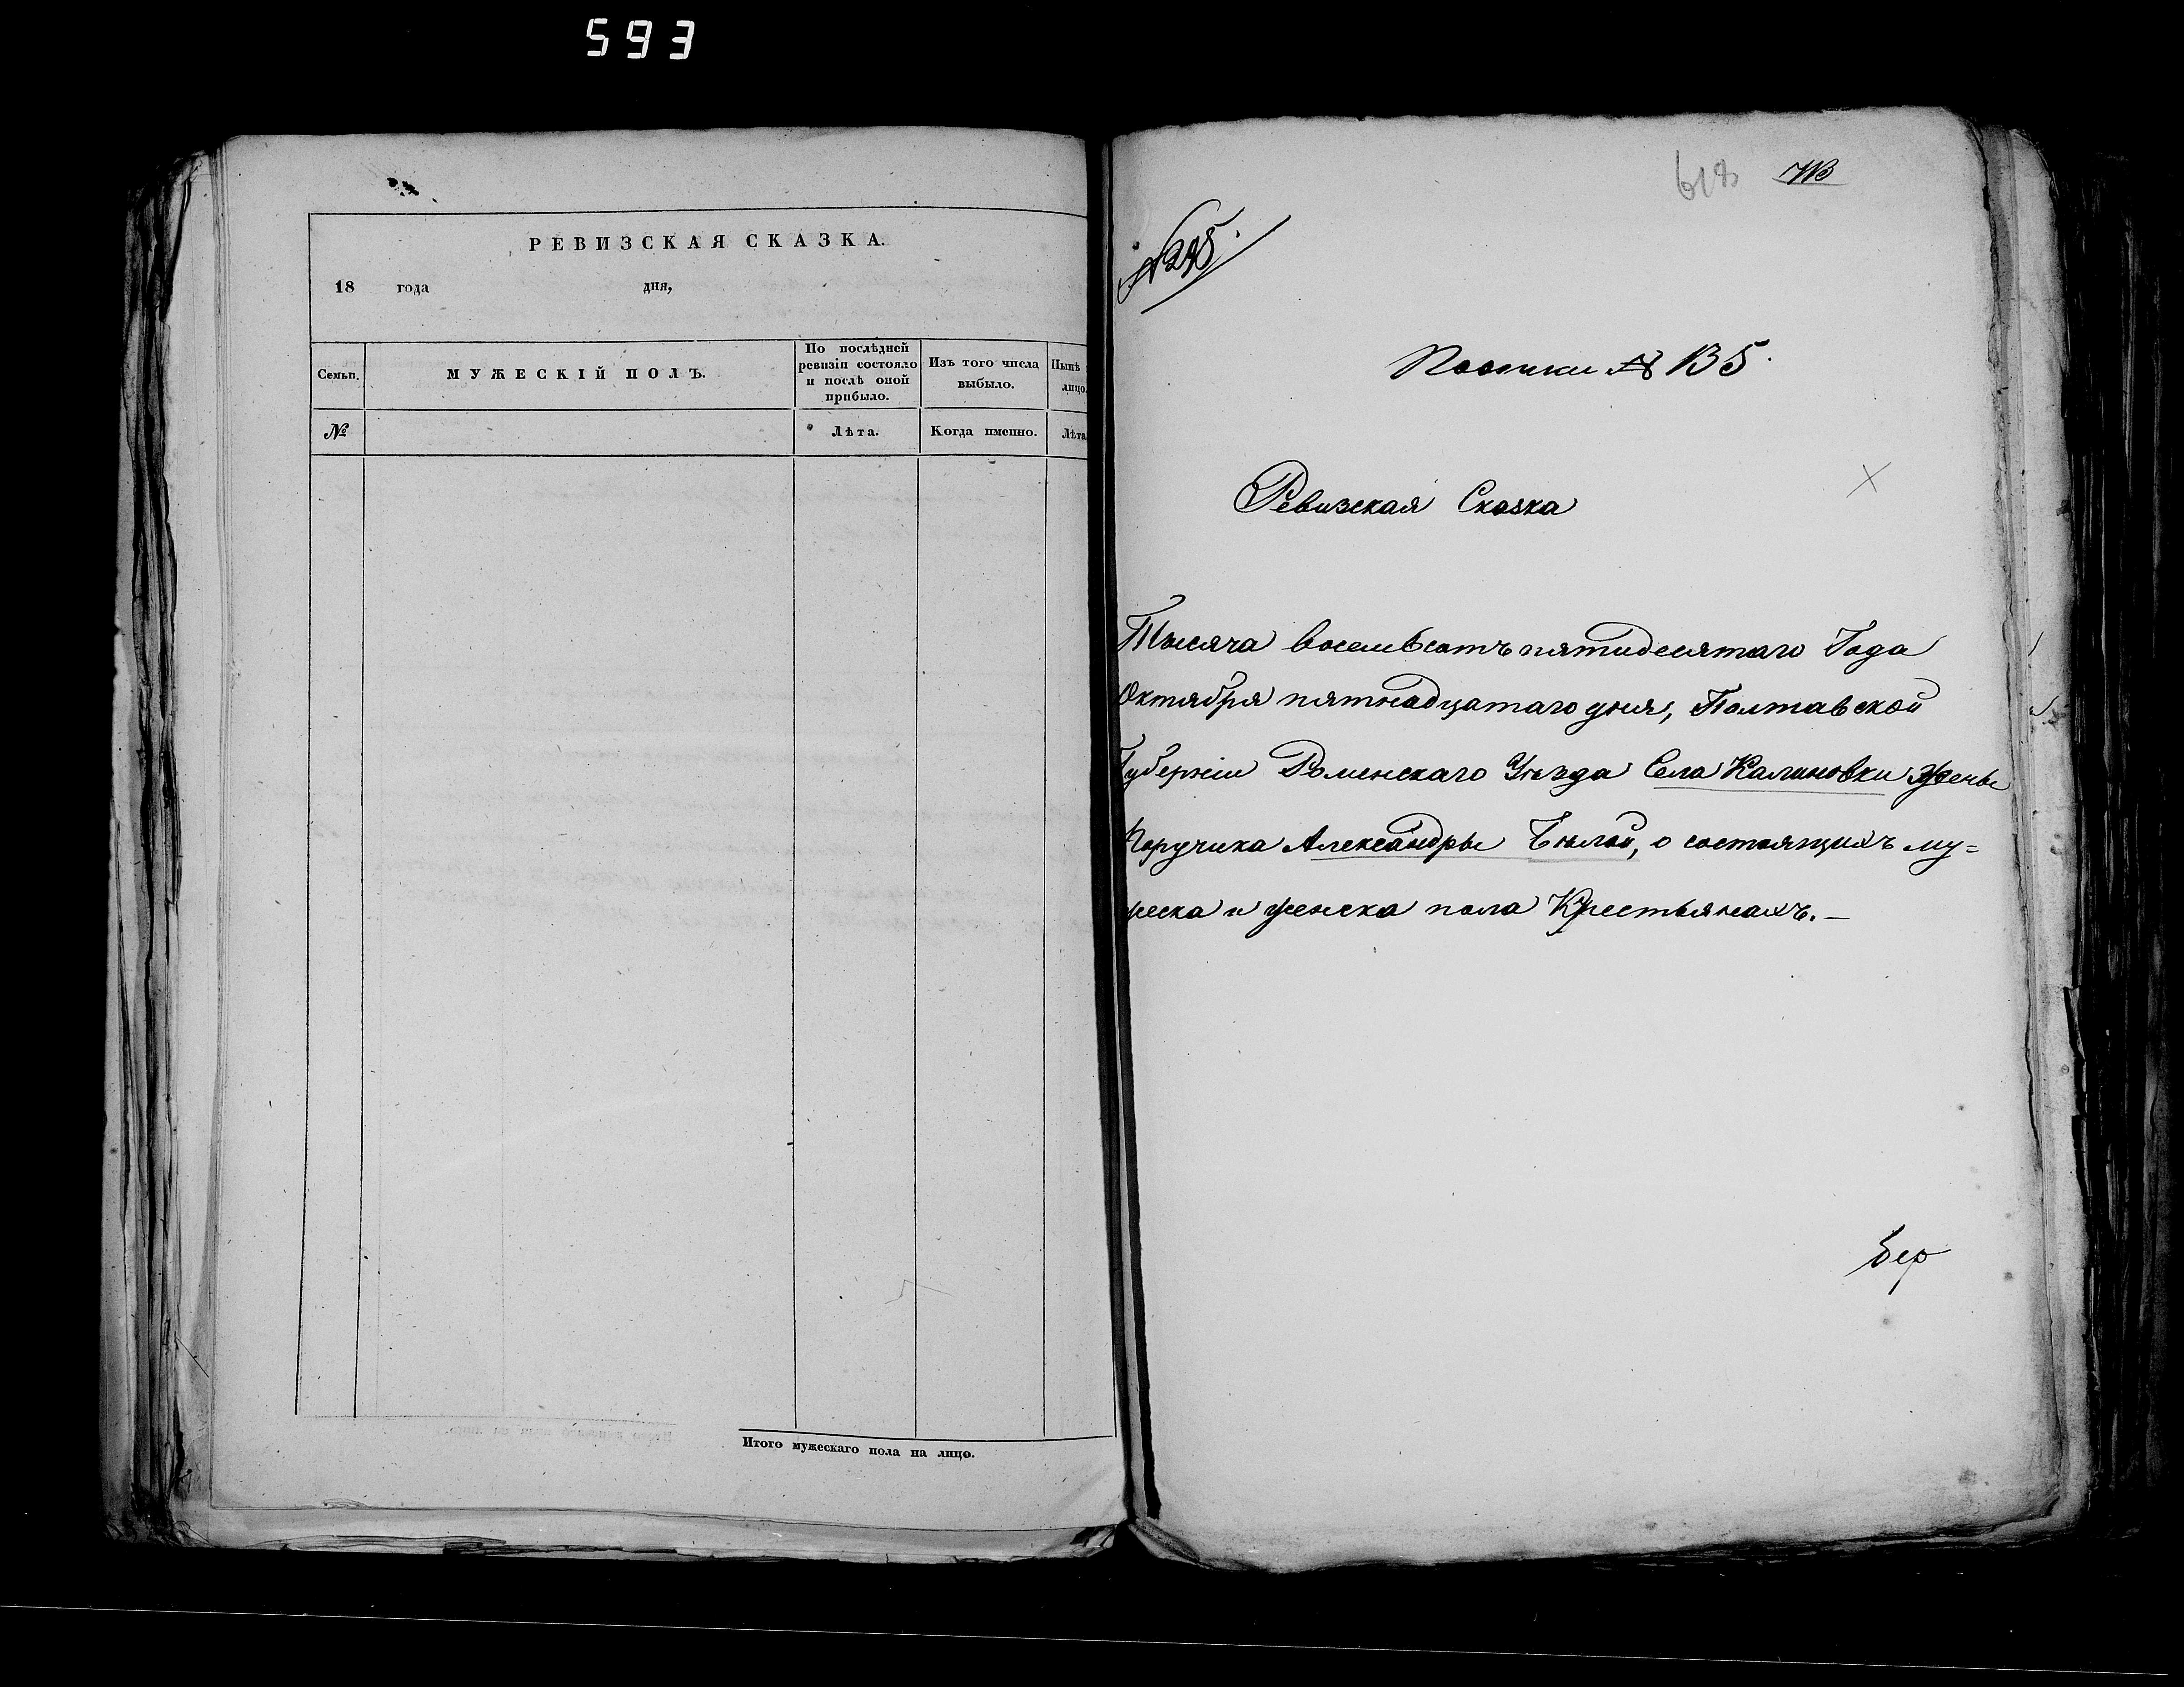 593
РЕВИЗСКАЯ СКАЗКА.
18 года дня,
Семьи.
МУЖЕСКІЙ ПОЛЪ.
По послѣдней
ревизіи состояло
и послѣ оной
прибыло.
Изъ того числа
выбыло.
Нынѣ
лицо.
№
Лѣта.
Когда именно.
Лѣта
Итого мужескаго пола на лицо.
618
№ 135.
Ревизская Сказка
Тысяча восемьсотъ пятидесятаго Года
Октября пятнадцатаго дня, Полтавской
Губерніи Роменскаго Уѣзда Села Калиновки Жены
Поручика Александры Бѣлой, о состоящихъ му=
жеска и женска пола Крестьянахъ. —